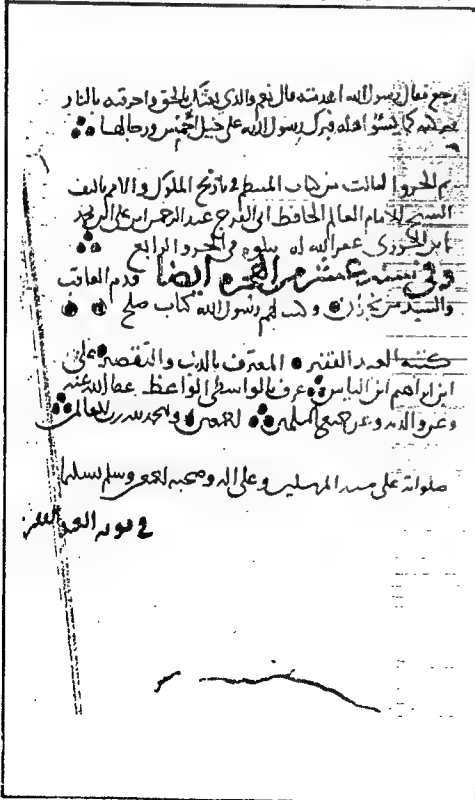 رجع فقال رسول الله اهدمته قال نعم والذي بعثك بالحق واحرقته بالنار
فبرك رسول الله على خيل احمس ورجالها
تم الجزو الثالث من كتاب المنتظم في تاريخ الملوك والامم تاليف
الشيخ الامام العالم الحافظ ابي الفرج عبد الرحمن ابن علي ابن محمد
ابن الجوزي غفر الله له يتلوه في الجزو الرابع
وفي سنة عشر من الهجرة ايضا قدم العاقب
والسيد من نجران وكتب لهم رسول الله كتاب صلح
كتبه العبد الفقير المعترف بالذنب والتقصير علي
ابن ابراهم ابن الياس عرف بالواسطي الواعظ عفا الله عنه
وعن والديه وعن جميع المسلمين اجمعين والحمد لله رب العالمين
صلواته على سيد المرسلين وعلى اله وصحبه اجمعين وسلم تسليما
في نوبة العبد الفقير